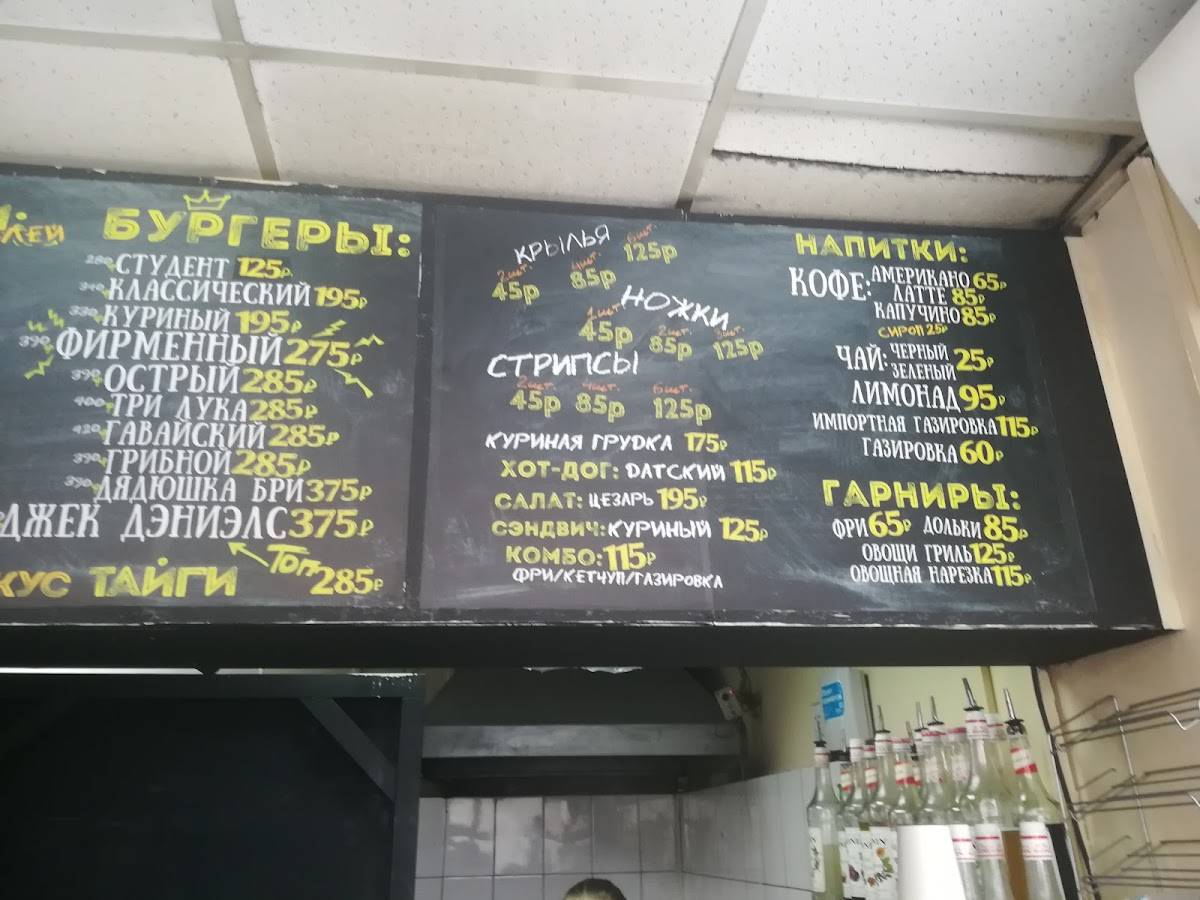 БУРГЕРЫ:
280 СТУДЕНТ 125₽
340 КЛАССИЧЕСКИЙ 195₽
330 КУРИНЫЙ 195₽
390 ФИРМЕННЫЙ 275₽
390 ОСТРЫЙ 285₽
400 ТРИ ЛУКА 285₽
420 ГАВАЙСКИЙ 285₽
390 ГРИБНОЙ 285₽
390 ДЯДЮШКА БРИ 375₽
ДЖЕК ДЭНИЭЛС 375₽
ТАЙГИ Топ 285₽
КРЫЛЬЯ
2шт. 4шт. 6шт.
45р 85р 125р
НОЖКИ
1шт. 2шт. 3шт.
45р 85р 125р
СТРИПСЫ
2шт. 4шт. 6шт.
45р 85р 125р
КУРИНАЯ ГРУДКА 175₽
ХОТ-ДОГ: ДАТСКИЙ 115₽
САЛАТ: ЦЕЗАРЬ 195₽
СЭНДВИЧ: КУРИНЫЙ 125₽
КОМБО: 115₽
ФРИ/КЕТЧУП/ГАЗИРОВКА
НАПИТКИ:
КОФЕ: АМЕРИКАНО 65₽
ЛАТТЕ 85₽
КАПУЧИНО 85₽
СИРОП 25₽
ЧАЙ: ЧЕРНЫЙ
ЗЕЛЕНЫЙ 25₽
ЛИМОНАД 95₽
ИМПОРТНАЯ ГАЗИРОВКА 115₽
ГАЗИРОВКА 60₽
ГАРНИРЫ:
ФРИ 65₽ ДОЛЬКИ 85₽
ОВОЩИ ГРИЛЬ 125₽
ОВОЩНАЯ НАРЕЗКА 115₽